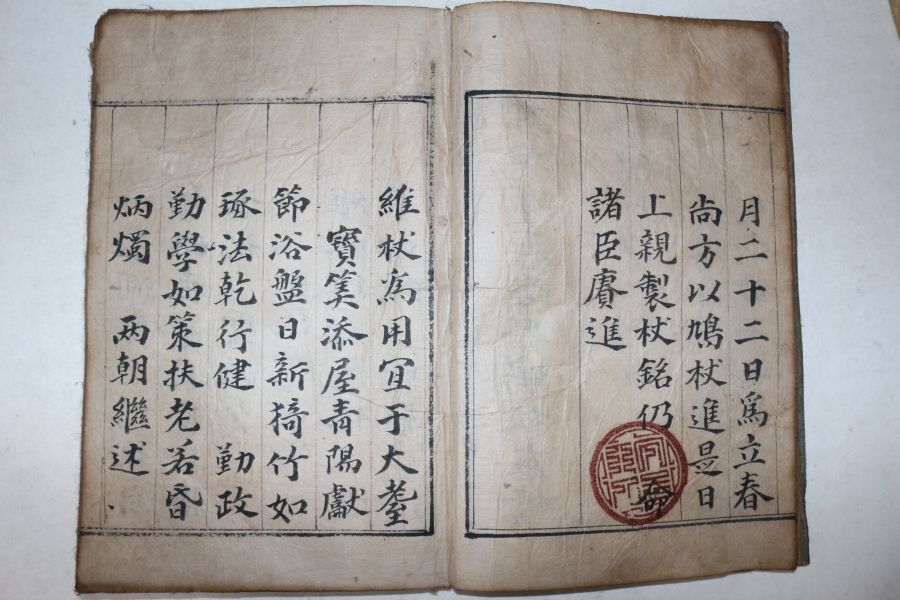 月二十二日爲立春
尙方以鳩杖進是日
上親製杖銘仍 命
諸臣賡進
維杖爲用冝于大耋
寶筭添屋青陽獻
節浴盤日新猗竹如
琢法乾行健 勤政
勤學如策扶老若昏
炳燭 兩朝繼述